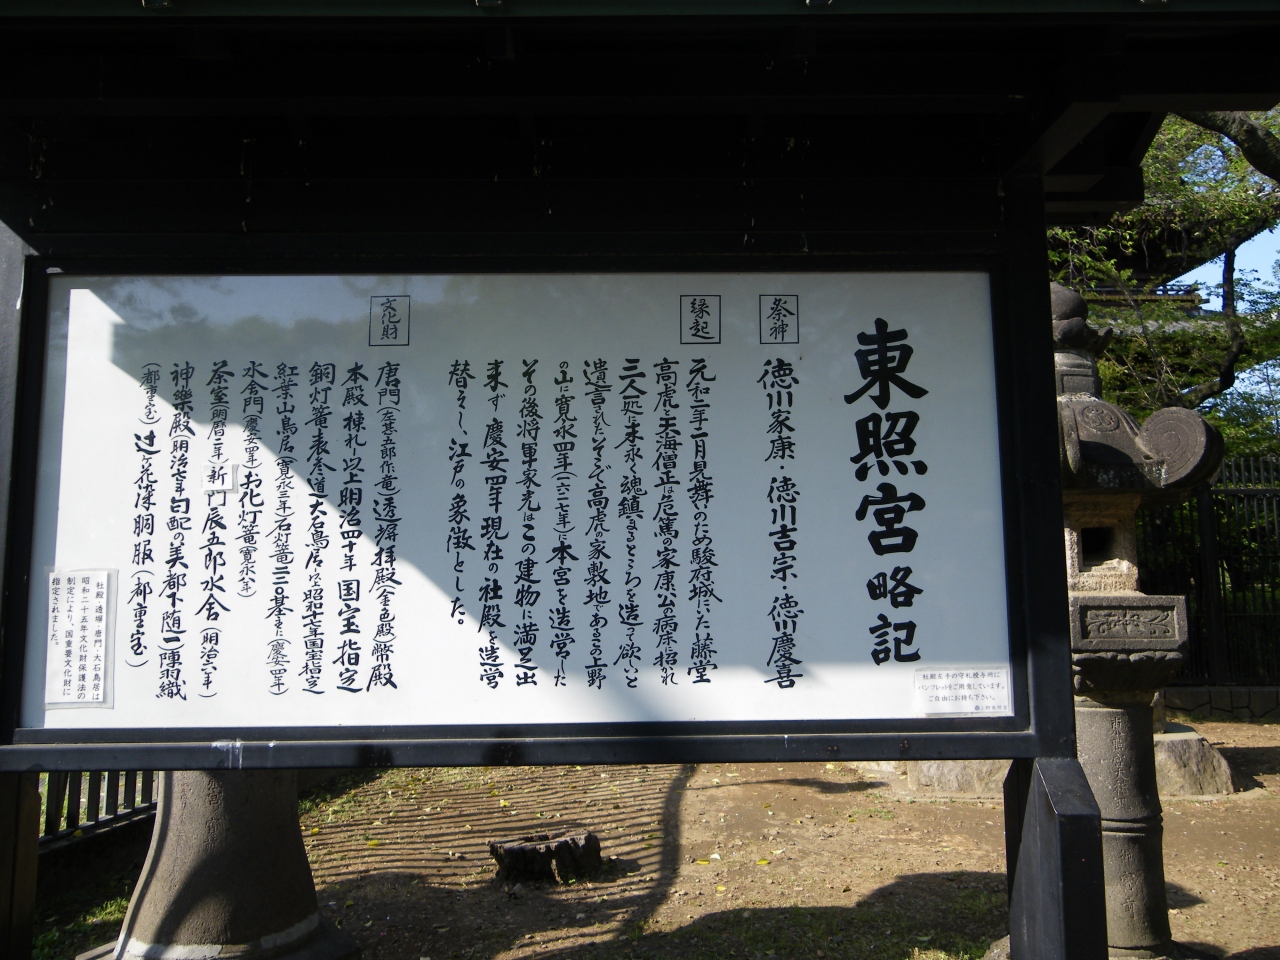 東照宮略記
祭神
徳川家康・徳川吉宗・徳川慶喜
縁起
元和二年二月見舞のため駿府城にいた藤堂
高虎と天海僧正は危篤の家康公の病床に招かれ
三人一処に末永く魂鎮まるところを造って欲しいと
遺言された。そこで高虎の家敷地であるこの上野
の山に寛永四年(一六二七年)に本宮を造営した
その後将軍家光はこの建物に満足出
来ず慶安四年現在の社殿を造営
替えし、江戸の象徴とした。
文化財
唐門(左甚五郎作竜)透塀拝殿(金色殿)幣殿
本殿棟札以上明治四十年国宝指定
銅灯篭表参道大石鳥居以上昭和十七年国宝指定
紅葉山鳥居(寛永三年)石灯篭二三〇基(慶安四年)
水舎門(慶安四年)お化灯篭(寛永八年)
茶室(明暦二年)新門辰五郎水舎(明治六年)
神樂殿(明治七年)匂配の美都下随一陣羽織
(都重宝)辻ヶ花染胴服(都重宝)
社殿・透塀・唐門・大石鳥居は
昭和二十五年文化財保護法の
制定により、国重要文化財に
指定されました。
社殿左手の守札授与所に
パンフレットをご用意しています。
ご自由にお持ち下さい。
上野東照宮